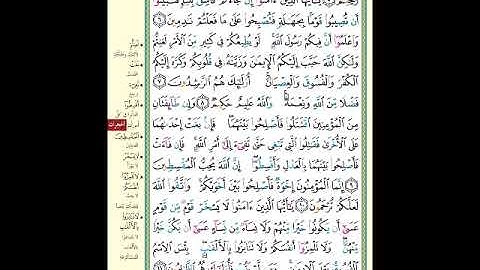 رَّحِيمٌ يَٰٓأَيُّهَا ٱلَّذِينَ ءَامَنُوٓاْ إِن جَآءَكُمْ فَاسِقٌۢ بِنَبَإٍ فَتَبَيَّنُوٓاْ
أَن تُصِيبُواْ قَوْمَۢا بِجَهَٰلَةٍ فَتُصْبِحُواْ عَلَىٰ مَا فَعَلْتُمْ نَٰدِمِينَ ٦
وَٱعْلَمُوٓاْ أَنَّ فِيكُمْ رَسُولَ ٱللَّهِ لَوْ يُطِيعُكُمْ فِي كَثِيرٍ مِّنَ ٱلْأَمْرِ لَعَنِتُّمْ
وَلَٰكِنَّ ٱللَّهَ حَبَّبَ إِلَيْكُمُ ٱلْإِيمَٰنَ وَزَيَّنَهُۥ فِي قُلُوبِكُمْ وَكَرَّهَ إِلَيْكُمُ
ٱلْكُفْرَ وَٱلْفُسُوقَ وَٱلْعِصْيَانَ أُوْلَٰٓئِكَ هُمُ ٱلرَّٰشِدُونَ ٧
فَضْلًا مِّنَ ٱللَّهِ وَنِعْمَةً وَٱللَّهُ عَلِيمٌ حَكِيمٌ ٨ وَإِن طَآئِفَتَانِ
مِنَ ٱلْمُؤْمِنِينَ ٱقْتَتَلُواْ فَأَصْلِحُواْ بَيْنَهُمَا فَإِنۢ بَغَتْ إِحْدَىٰهُمَا
عَلَى ٱلْأُخْرَىٰ فَقَٰتِلُواْ ٱلَّتِي تَبْغِي حَتَّىٰ تَفِيٓءَ إِلَىٰٓ أَمْرِ ٱللَّهِ فَإِن فَآءَتْ
فَأَصْلِحُواْ بَيْنَهُمَا بِٱلْعَدْلِ وَأَقْسِطُوٓاْ إِنَّ ٱللَّهَ يُحِبُّ ٱلْمُقْسِطِينَ
٩ إِنَّمَا ٱلْمُؤْمِنُونَ إِخْوَةٌ فَأَصْلِحُواْ بَيْنَ أَخَوَيْكُمْ وَٱتَّقُواْ ٱللَّهَ
لَعَلَّكُمْ تُرْحَمُونَ ١٠ يَٰٓأَيُّهَا ٱلَّذِينَ ءَامَنُواْ لَا يَسْخَرْ قَوْمٌ مِّن قَوْمٍ
عَسَىٰٓ أَن يَكُونُواْ خَيْرًا مِّنْهُمْ وَلَا نِسَآءٌ مِّن نِّسَآءٍ عَسَىٰٓ أَن يَكُنَّ خَيْرًا
مِّنْهُنَّ وَلَا تَلْمِزُوٓاْ أَنفُسَكُمْ وَلَا تَنَابَزُواْ بِٱلْأَلْقَٰبِ بِئْسَ ٱلِٱسْمُ
ٱلْفُسُوقُ بَعْدَ ٱلْإِيمَٰنِ وَمَن لَّمْ يَتُبْ فَأُوْلَٰٓئِكَ هُمُ ٱلظَّٰلِمُونَ
الحجرات